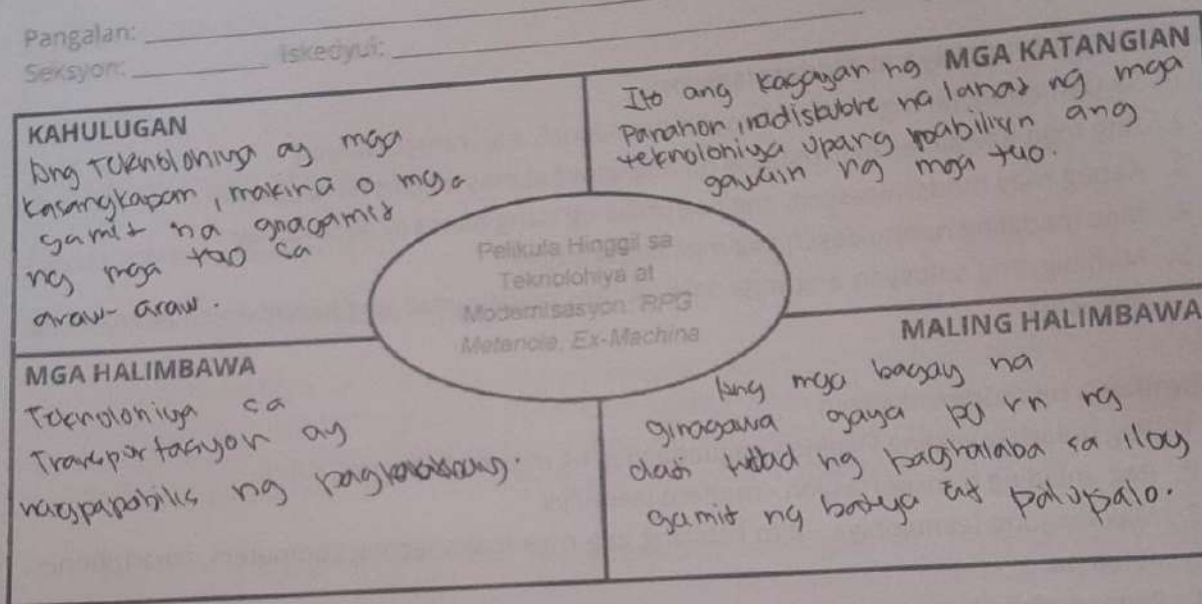 Pangalan:
Seksyon: Iskedyul:
KAHULUGAN
Ang Teknolohiya ay mga
kasangkapan, makina o mga
gamit na gnagamit
ng mga tao ca
araw-araw.
MGA KATANGIAN
Ito ang kagayan ng
Panahon, nadiskubre na lahat ng mga
teknolohiya upang mabiliyn ang
gawain ng mga tao.
Pelikula Hinggil sa
Teknolohiya at
Modernisasyon: RPG
Metanoia, Ex-Machina
MGA HALIMBAWA
Teknolohiya ca
Transportasyon ay
nagpapabilis ng
MALING HALIMBAWA
Ang mga bagay na
ginagawa gaya pa rn ng
dati tulad ng paghalaba sa ilog
gamit ng batya at palupalo.